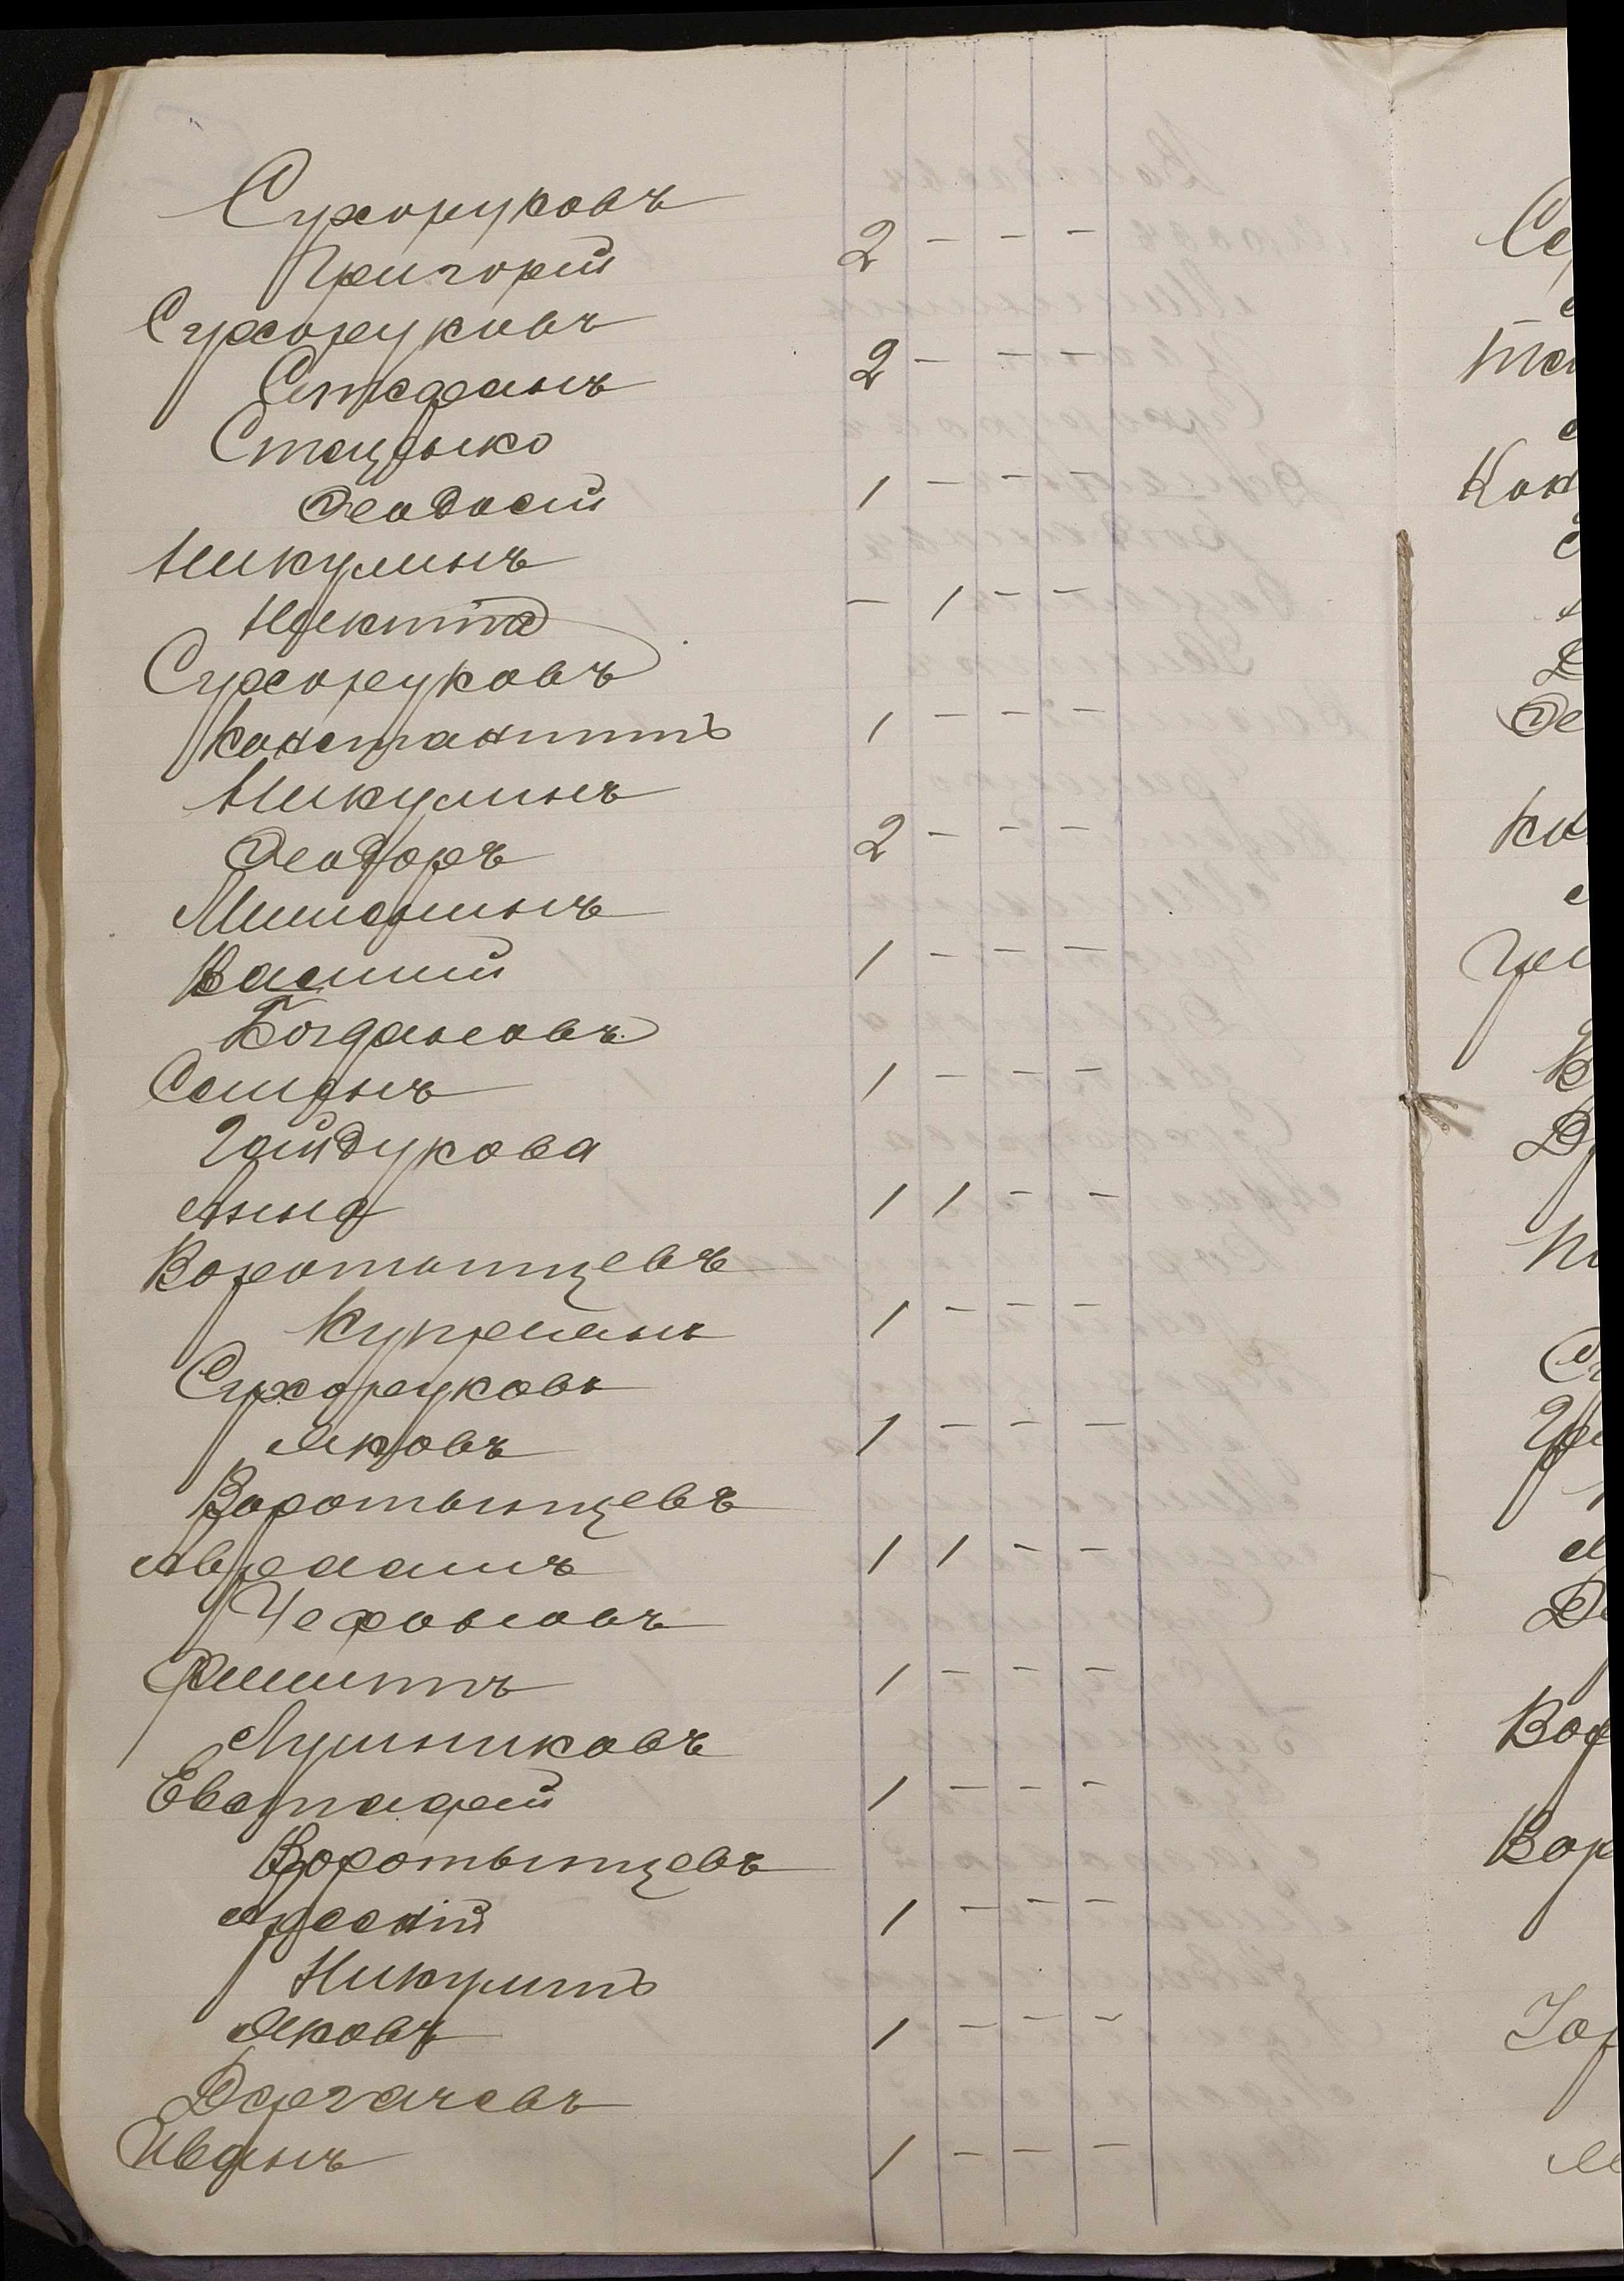 Сухоруковъ
Григорій 2 - - -
Сухоруковъ
Стефанъ 2 - - -
Стецынко
Феодосій 1 - - -
Никулинъ
Никита - 1 - -
Сухоруковъ
Константинъ 1 - - -
Никулинъ
Феодоръ 2 - - -
Мишенинъ
Василій 1 - - -
Богдановъ
Семенъ 1 - - -
Гайдукова
Анна 1 1 - -
Воротынцевъ
Купреянъ 1 - - -
Сухоруковъ
Яковъ 1 - - -
Воротынцевъ
Авраамъ 1 1 - -
Чехововъ
Филиппъ 1 - - -
Лушниковъ
Евстафій 1 - - -
Воротынцевъ
Арсеній 1 - - -
Никулинъ
Яковъ 1 - - -
Дергачевъ
Иванъ 1 - - -